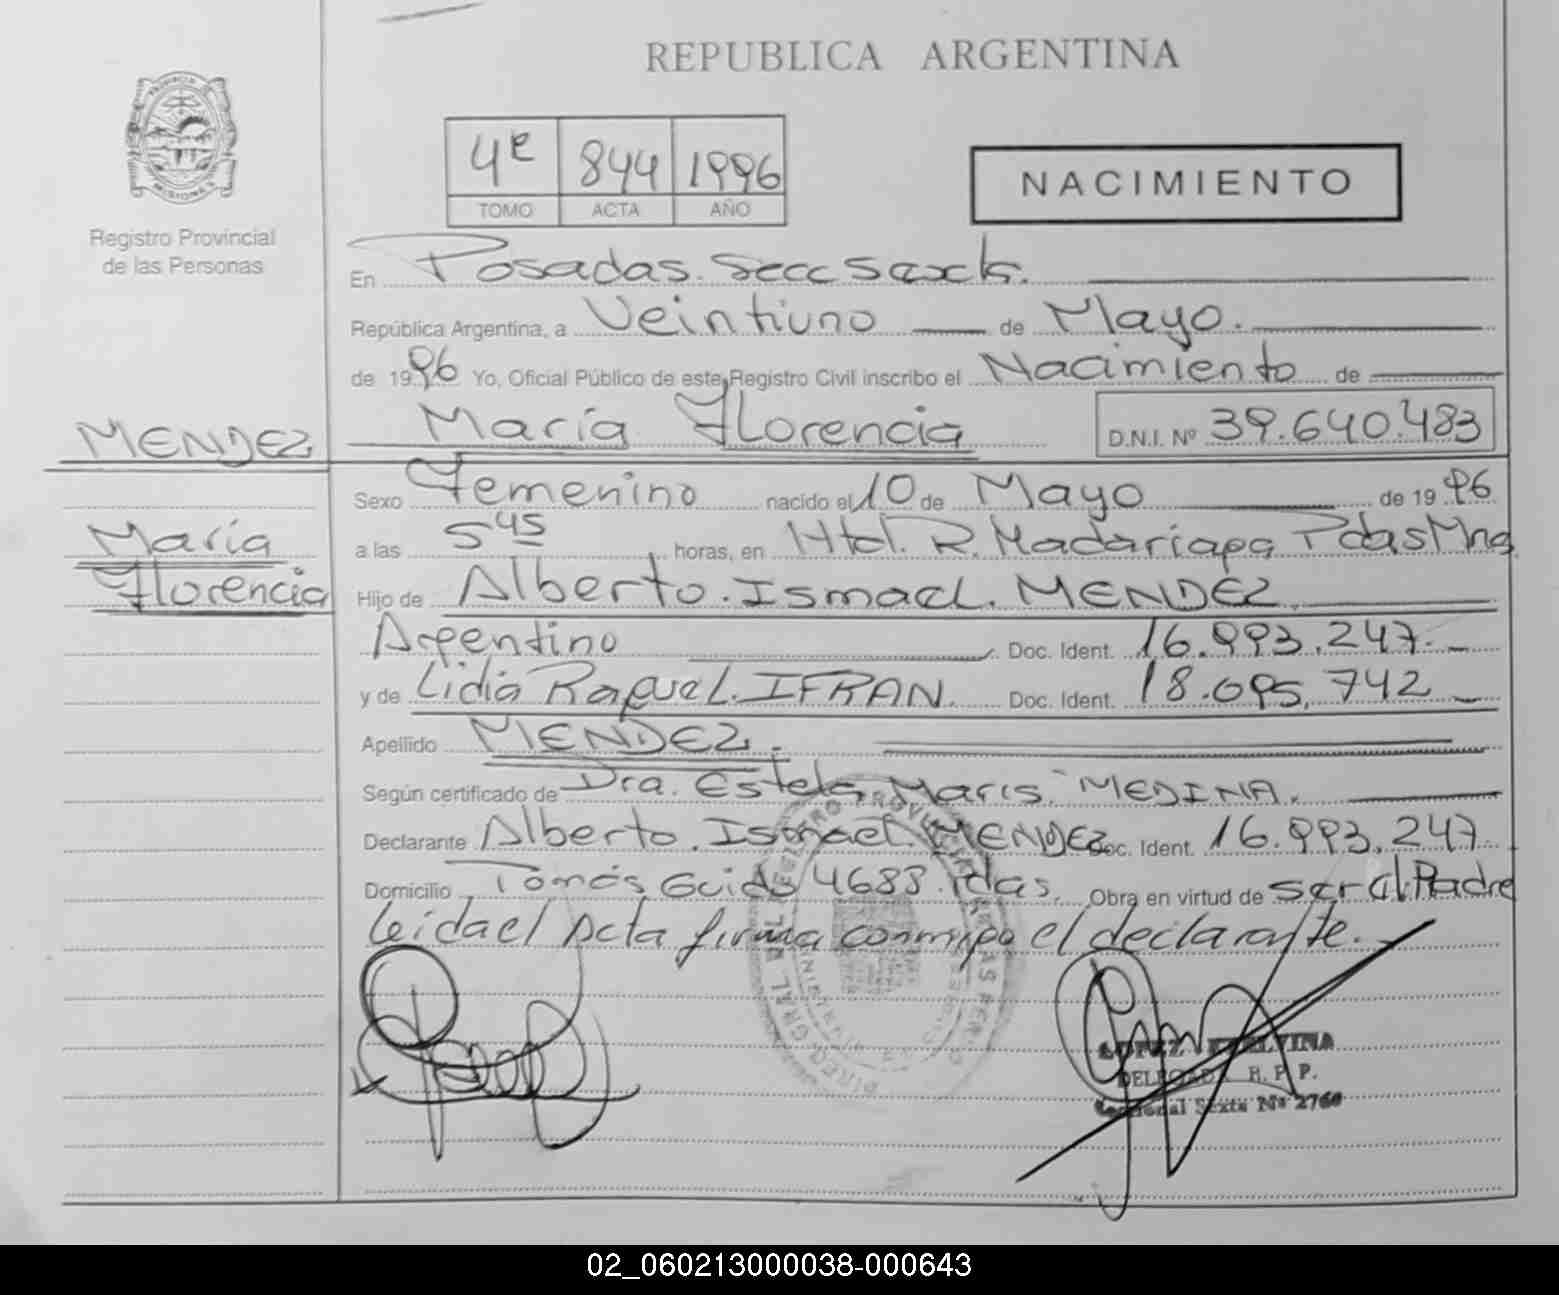 REPUBLICA ARGENTINA
PROVINCIA
MISIONES
Registro Provincial
de las Personas
4º 844 1996
TOMO ACTA AÑO
NACIMIENTO
En Posadas. Secc Sexta.
República Argentina, a Veintiuno de Mayo.
de 1996 Yo, Oficial Público de este Registro Civil inscribo el Nacimiento de
MENDEZ
María Florencia D.N.I. Nº 39.640.483
Sexo Femenino nacido el 10 de Mayo de 1996
María
Florencia
a las 5 45 horas, en Htal. R. Madariaga Pdas Mns
Hijo de Alberto. Ismael. MENDEZ
Argentino Doc. Ident. 16.993.247.
y de Lidia Raquel. IFRAN. Doc. Ident. 18.095.742
Apellido MENDEZ.
Según certificado de Dra. Estela Maris MEDINA.
Declarante Alberto. Ismael. MENDEZ Doc. Ident. 16.993.247
Domicilio Tomás Guido 4688. Pdas. Obra en virtud de ser el Padre
leida el Acta firma conmigo el declarante.
LOPEZ
DELEGADA R. P. P.
Seccional Sexta Nº 2760
02_060213000038-000643